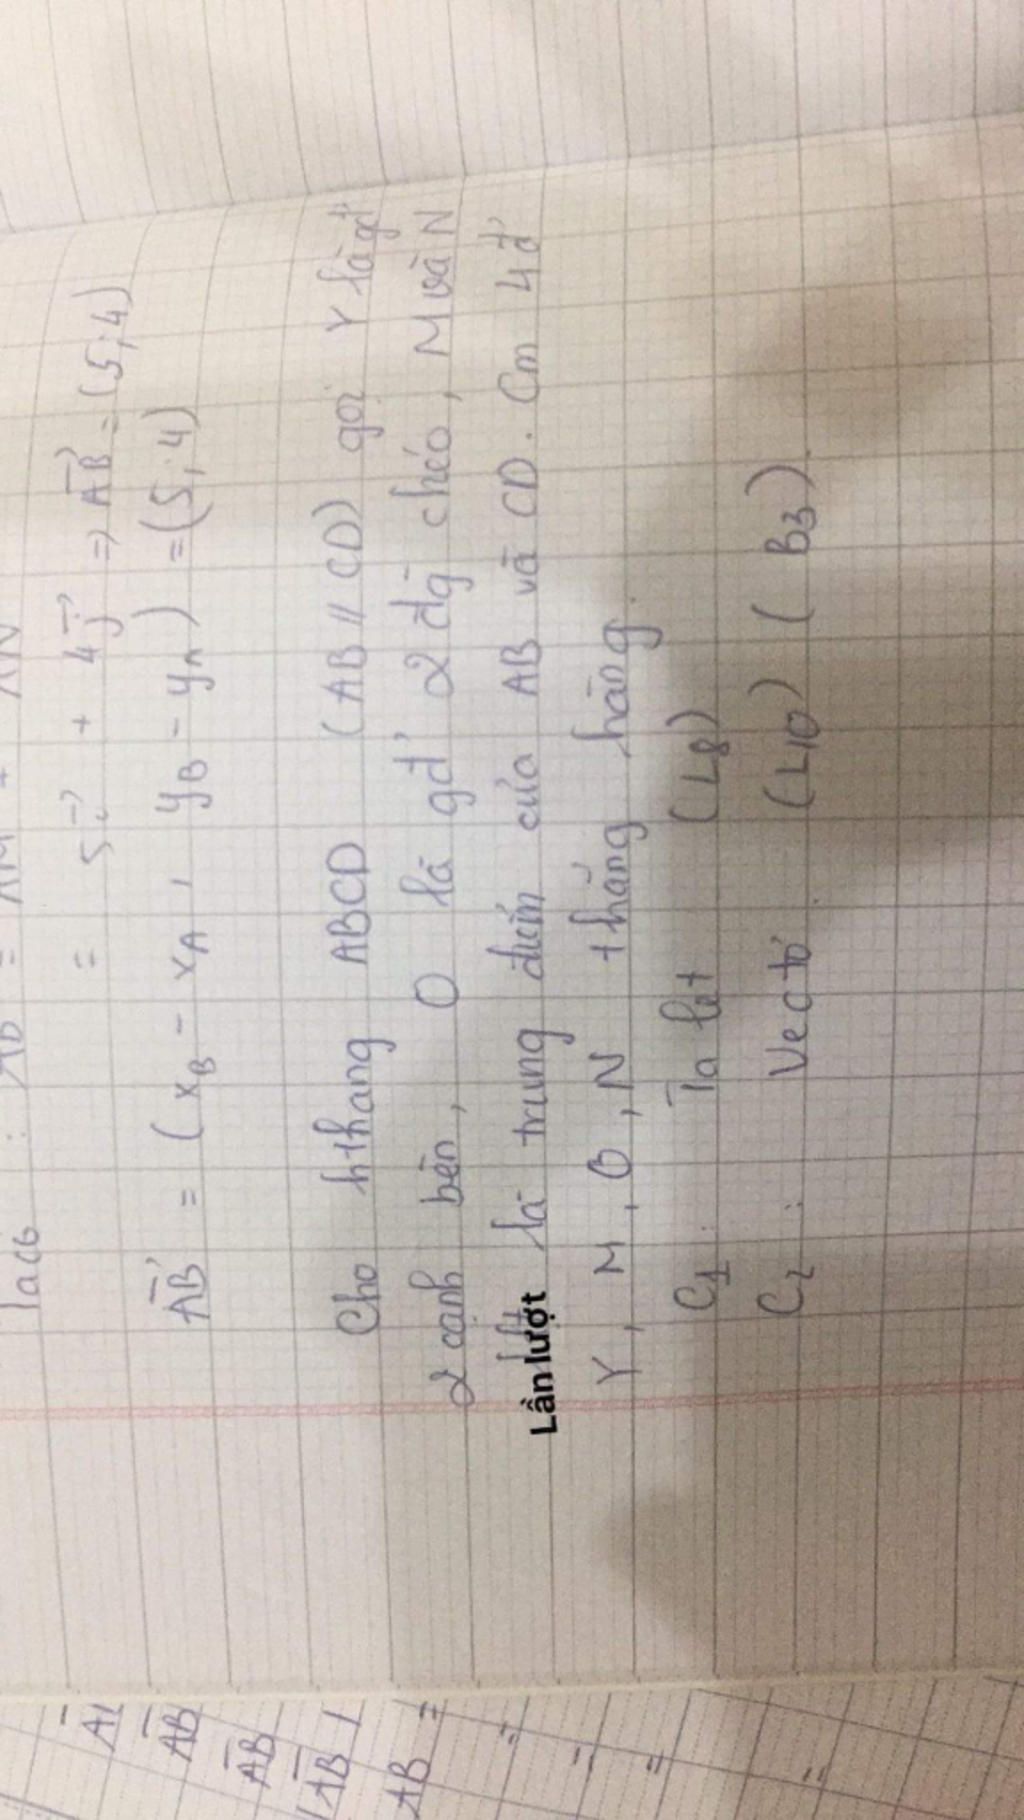 Ta có : AB = AM + AN
= 5i + 4j => AB = (5; 4)
AB = (xB - xA , yB - yA) = (5; 4)
Cho hthang ABCD (AB // CD) gọi Y là gđ
2 cạnh bên, O là gđ 2 đg chéo, M và N
Lần lượt là trung điểm của AB và CD. Cm 4 đ
Y, M, O, N thẳng hàng.
C1: Ta let (L8)
C2: Vectơ (L10) (B3)
AB
AB
AB
AB